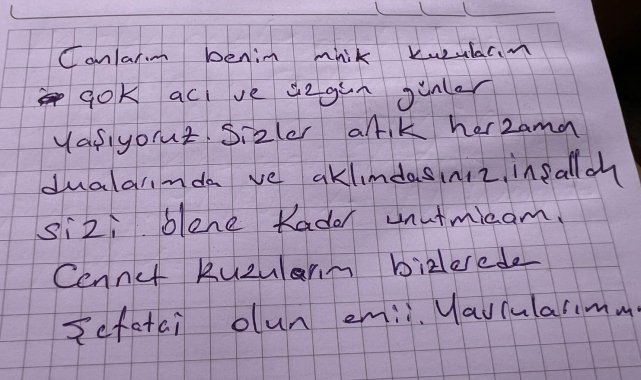 Canlarım benim minik kuzularım
çok acı ve üzgün günler
yaşıyoruz. Sizler artık herzaman
dualarımda ve aklımdasınız, inşallah
sizi ölene kadar unutmicam.
Cennet kuzularım bizlerede
şefatçi olun emii. Yavrularımm.